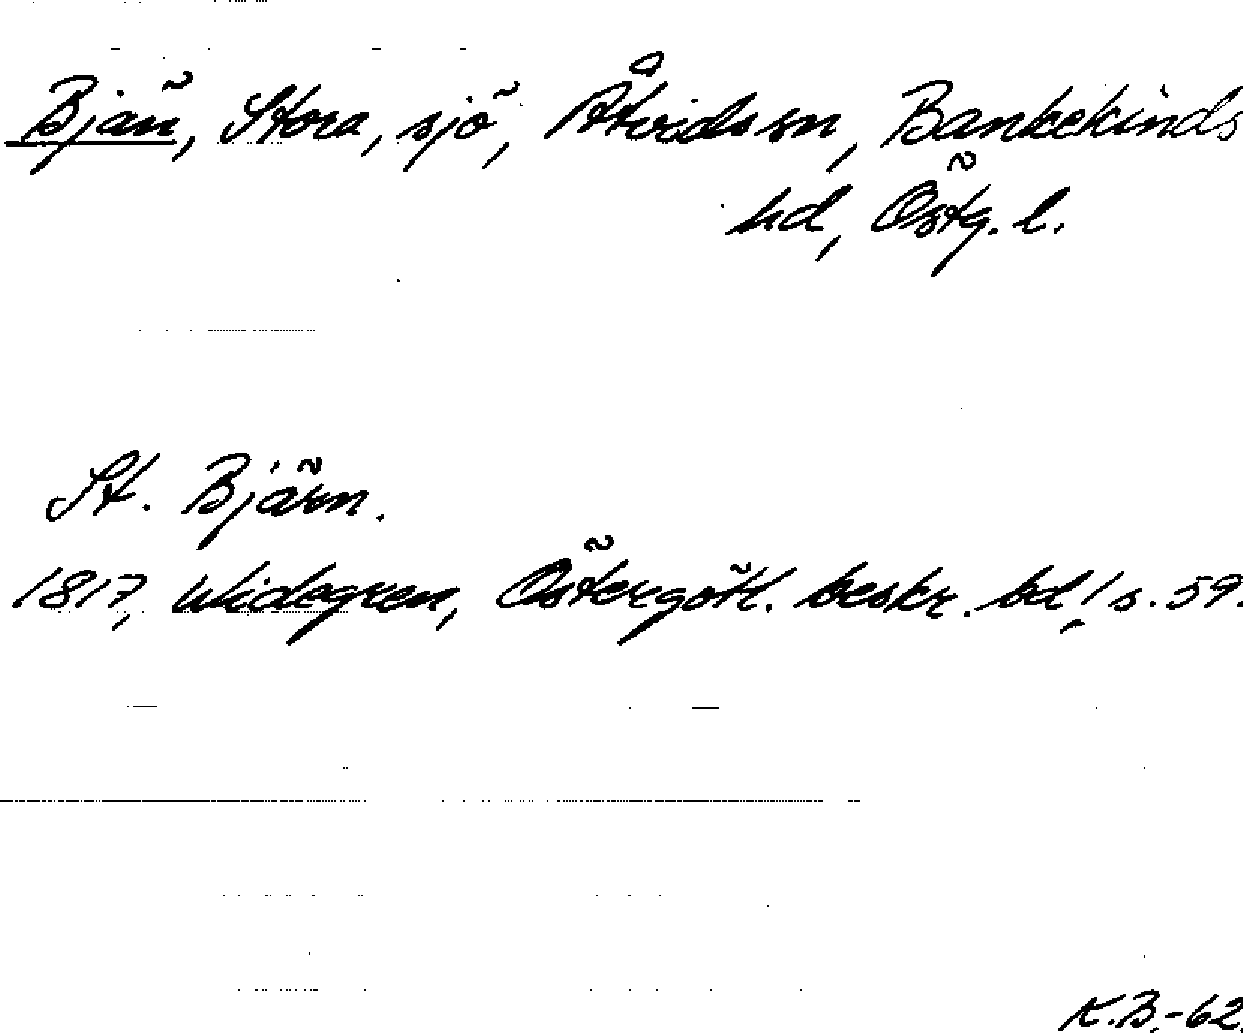 Bjän, Stora, sjö, Åtvids sn, Bankekinds
hd, Östg. l.
St. Bjärn.
1817, Widegren, Östergötl. beskr. bd 1 s. 59.
K.B.-62.